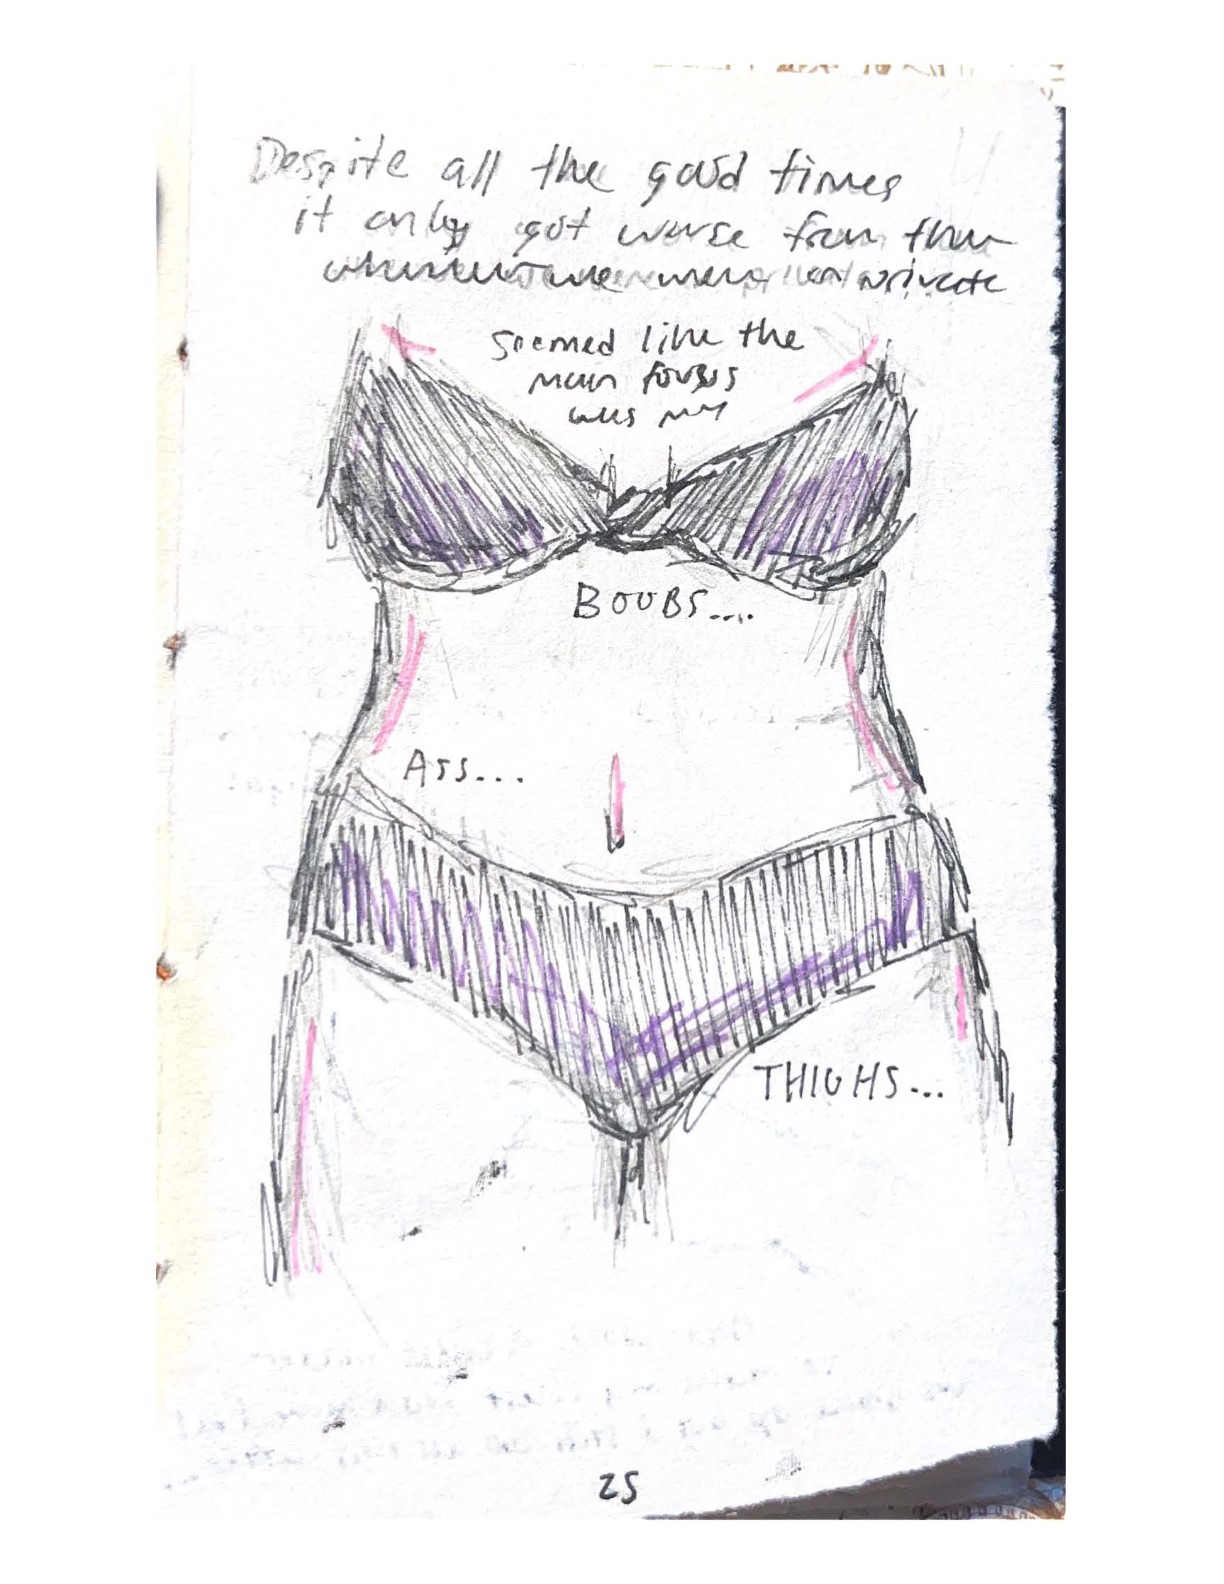 Despite all the good times
it only got worse from then
we were private
seemed like the
main focus
was my
BOOBS....
ASS...
THIGHS...
25